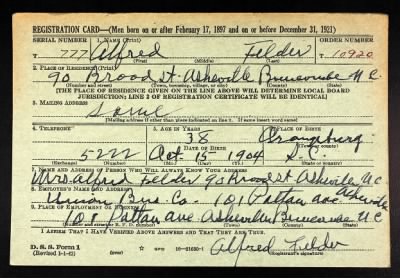 REGISTRATION CARD—(Men born on or after February 17, 1897 and on or before December 31, 1921)
SERIAL NUMBER 1. NAME (Print) ORDER NUMBER
777 Alfred Felder 10920
(First) (Middle) (Last)
2. PLACE OF RESIDENCE (Print)
90 Broad St. Asheville Buncombe N C
(Number and street) (Town, township, village, or city) (County) (State)
[THE PLACE OF RESIDENCE GIVEN ON THE LINE ABOVE WILL DETERMINE LOCAL BOARD
JURISDICTION; LINE 2 OF REGISTRATION CERTIFICATE WILL BE IDENTICAL]
3. MAILING ADDRESS
Same
[Mailing address if other than place indicated on line 2. If same insert word same]
4. TELEPHONE 5. AGE IN YEARS 6. PLACE OF BIRTH
38 Orangeburg
DATE OF BIRTH (Town or county)
5222 Oct. 15 1904 S.C.
(Exchange) (Number) (Mo.) (Day) (Yr.) (State or country)
7. NAME AND ADDRESS OF PERSON WHO WILL ALWAYS KNOW YOUR ADDRESS
Mrs. Alfred Felder 90 Broad St Asheville N.C
8. EMPLOYER'S NAME AND ADDRESS
Union Bus. Co. 101 Patton ave. Asheville
9. PLACE OF EMPLOYMENT OR BUSINESS
101 Patton ave. Asheville Buncombe N C
(Number and street or R. F. D. number) (Town) (County) (State)
I AFFIRM THAT I HAVE VERIFIED ABOVE ANSWERS AND THAT THEY ARE TRUE.
D. S. S. Form 1 16—21630-1 Alfred Felder
(Revised 1-1-42) (over) (Registrant's signature)